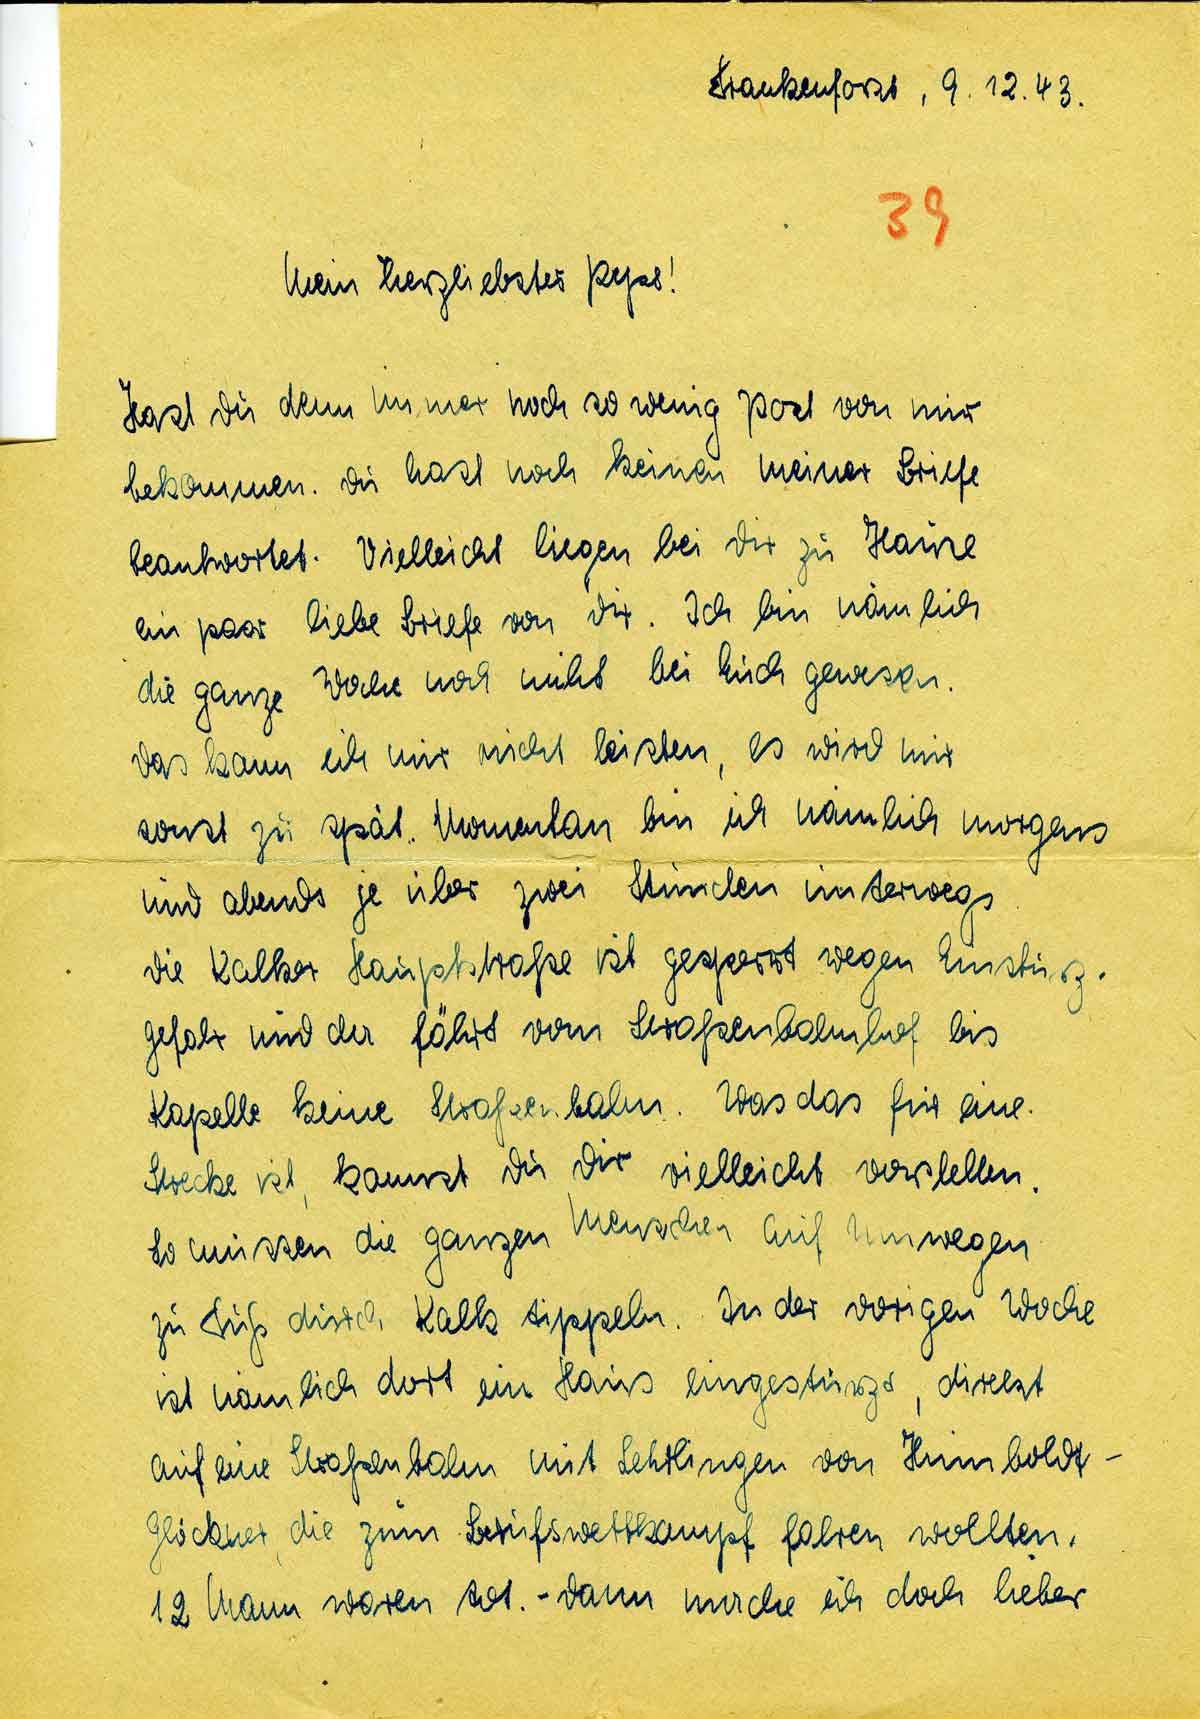 Frankenforst, 9.12.43.
39
Mein herzliebster Peps!
Hast Du denn immer noch so wenig Post von mir
bekommen. Du hast noch keinen meiner Briefe
beantwortet. Vielleicht liegen bei Dir zu Hause
ein paar liebe Briefe von Dir. Ich bin nämlich
die ganze Woche noch nicht bei Euch gewesen.
Das kann ich mir nicht leisten, es wird mir
sonst zu spät. Momentan bin ich nämlich morgens
und abends je über zwei Stunden unterwegs
die Kalker Hauptstraße ist gesperrt wegen Einsturz-
gefahr und da fährt vom Straßenbahnhof bis
Kapelle keine Straßenbahn. Was das für eine
Strecke ist, kannst Du Dir vielleicht vorstellen.
So müssen die ganzen Menschen auf Umwegen
zu Fuß durch Kalk tippeln. In der vorigen Woche
ist nämlich dort ein Haus eingestürzt, direkt
auf eine Straßenbahn mit Lehrlingen von Humboldt-
Glöckner, die zum Berufswettkampf fahren wollten.
12 Mann waren tot. - Dann mache ich doch lieber